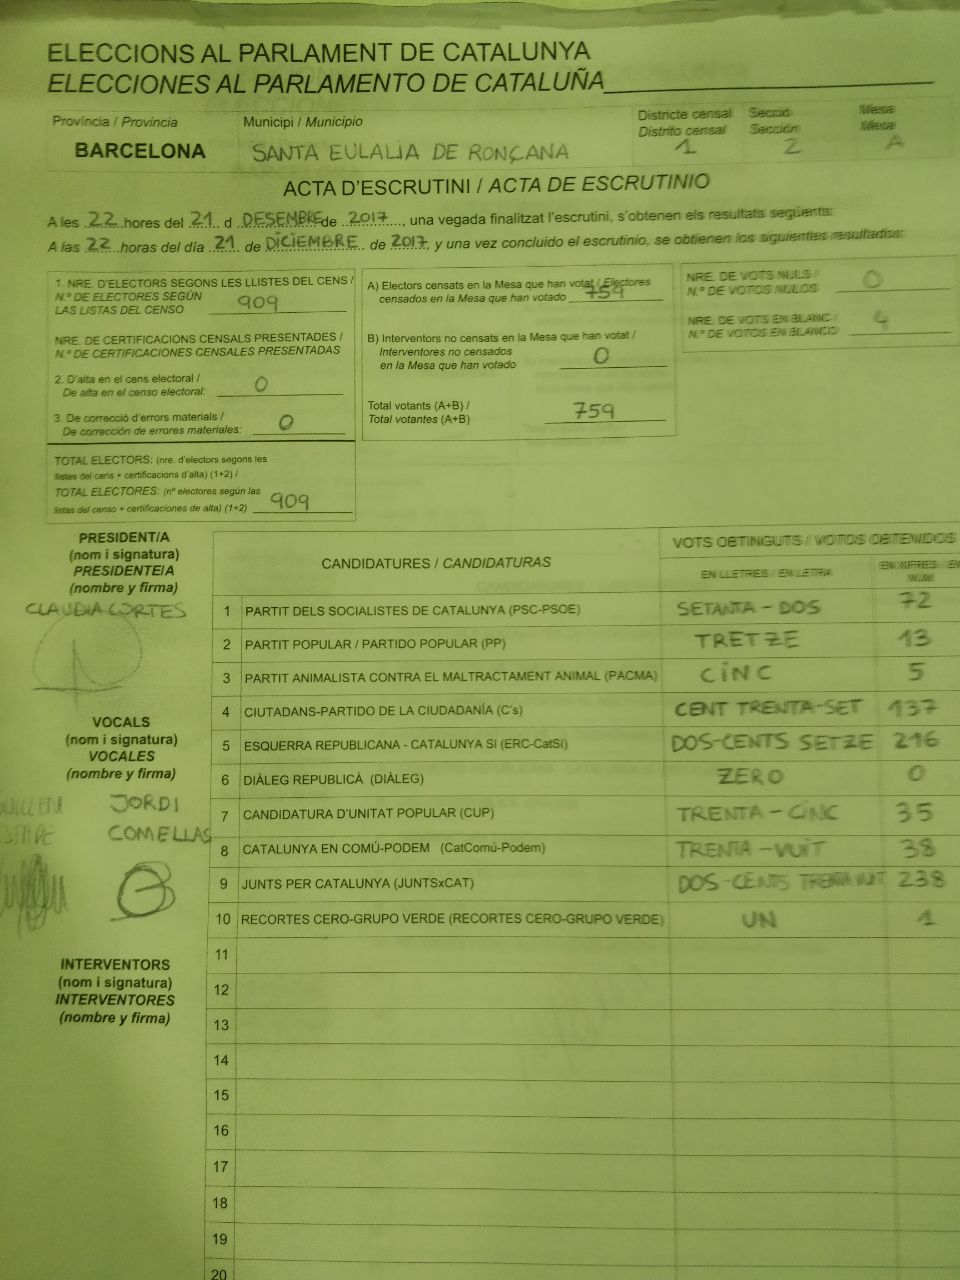 ELECCIONS AL PARLAMENT DE CATALUNYA
ELECCIONES AL PARLAMENTO DE CATALUÑA
Província / Provincia
BARCELONA
Municipi / Municipio
SANTA EULALIA DE RONÇANA
Districte censal
Distrito censal
1
Secció
Sección
2
Mesa
Mesa
A
ACTA D'ESCRUTINI / ACTA DE ESCRUTINIO
A les 22 hores del 21 d DESEMBRE de 2017, una vegada finalitzat l'escrutini, s'obtenen els resultats següents:
A las 22 horas del día 21 de DICIEMBRE de 2017, y una vez concluido el escrutinio, se obtienen los siguientes resultados:
1. NRE. D'ELECTORS SEGONS LES LLISTES DEL CENS /
N.º DE ELECTORES SEGÚN
LAS LISTAS DEL CENSO 909
NRE. DE CERTIFICACIONS CENSALS PRESENTADES /
N.º DE CERTIFICACIONES CENSALES PRESENTADAS
2. D'alta en el cens electoral /
De alta en el censo electoral: 0
3. De correcció d'errors materials /
De corrección de errores materiales: 0
TOTAL ELECTORS: (nre. d'electors segons les
llistes del cens + certificacions d'alta) (1+2) /
TOTAL ELECTORES: (nº electores según las
listas del censo + certificaciones de alta) (1+2) 909
A) Electors censats en la Mesa que han votat / Electores
censados en la Mesa que han votado 759
B) Interventors no censats en la Mesa que han votat /
Interventores no censados
en la Mesa que han votado 0
Total votants (A+B) /
Total votantes (A+B) 759
NRE. DE VOTS NULS /
N.º DE VOTOS NULOS 0
NRE. DE VOTS EN BLANC /
N.º DE VOTOS EN BLANCO 4
PRESIDENT/A
(nom i signatura)
PRESIDENTE/A
(nombre y firma)
CLAUDIA CORTES
VOCALS
(nom i signatura)
VOCALES
(nombre y firma)
JORDI
COMELLAS
INTERVENTORS
(nom i signatura)
INTERVENTORES
(nombre y firma)
CANDIDATURES / CANDIDATURAS
VOTS OBTINGUTS / VOTOS OBTENIDOS
EN LLETRES / EN LETRA
EN XIFRES / EN
1 PARTIT DELS SOCIALISTES DE CATALUNYA (PSC-PSOE) SETANTA - DOS 72
2 PARTIT POPULAR / PARTIDO POPULAR (PP) TRETZE 13
3 PARTIT ANIMALISTA CONTRA EL MALTRACTAMENT ANIMAL (PACMA) CINC 5
4 CIUTADANS-PARTIDO DE LA CIUDADANÍA (C's) CENT TRENTA-SET 137
5 ESQUERRA REPUBLICANA - CATALUNYA SI (ERC-CatSí) DOS-CENTS SETZE 216
6 DIÀLEG REPUBLICÀ (DIÀLEG) ZERO 0
7 CANDIDATURA D'UNITAT POPULAR (CUP) TRENTA - CINC 35
8 CATALUNYA EN COMÚ-PODEM (CatComú-Podem) TRENTA - VUIT 38
9 JUNTS PER CATALUNYA (JUNTSxCAT) DOS-CENTS TRENTA VUIT 238
10 RECORTES CERO-GRUPO VERDE (RECORTES CERO-GRUPO VERDE) UN 1
11
12
13
14
15
16
17
18
19
20